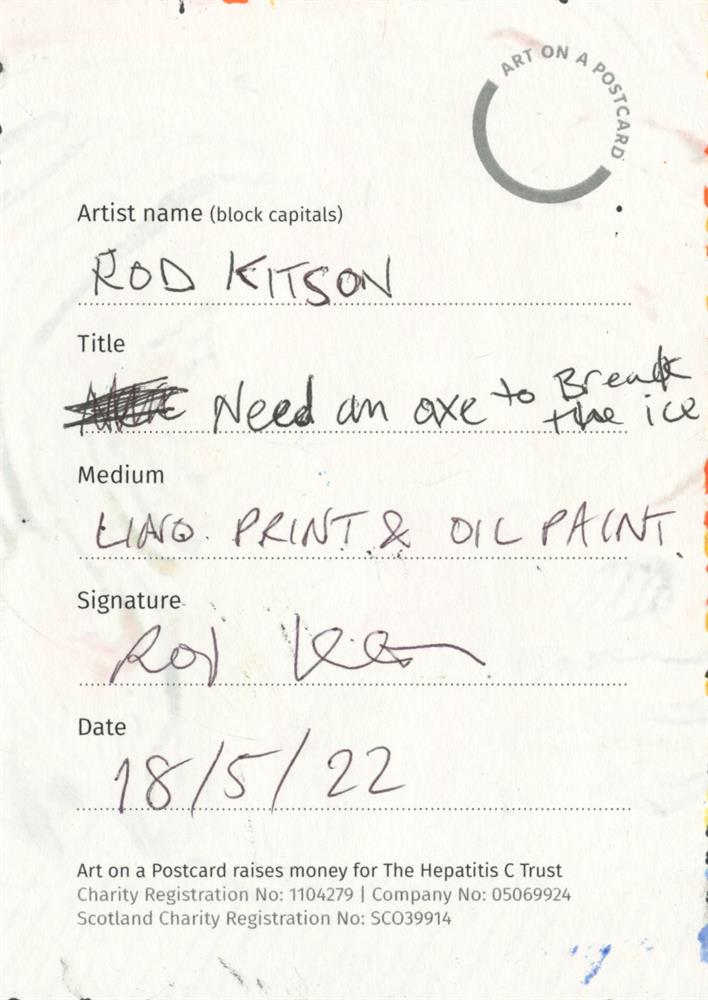 ART ON A POSTCARD
Artist name (block capitals)
ROD KITSON
Title
Need an axe to Break the ice
Medium
LINO. PRINT & OIL PAINT.
Signature
Rod
Date
18/5/22
Art on a Postcard raises money for The Hepatitis C Trust
Charity Registration No: 1104279 | Company No: 05069924
Scotland Charity Registration No: SCO39914